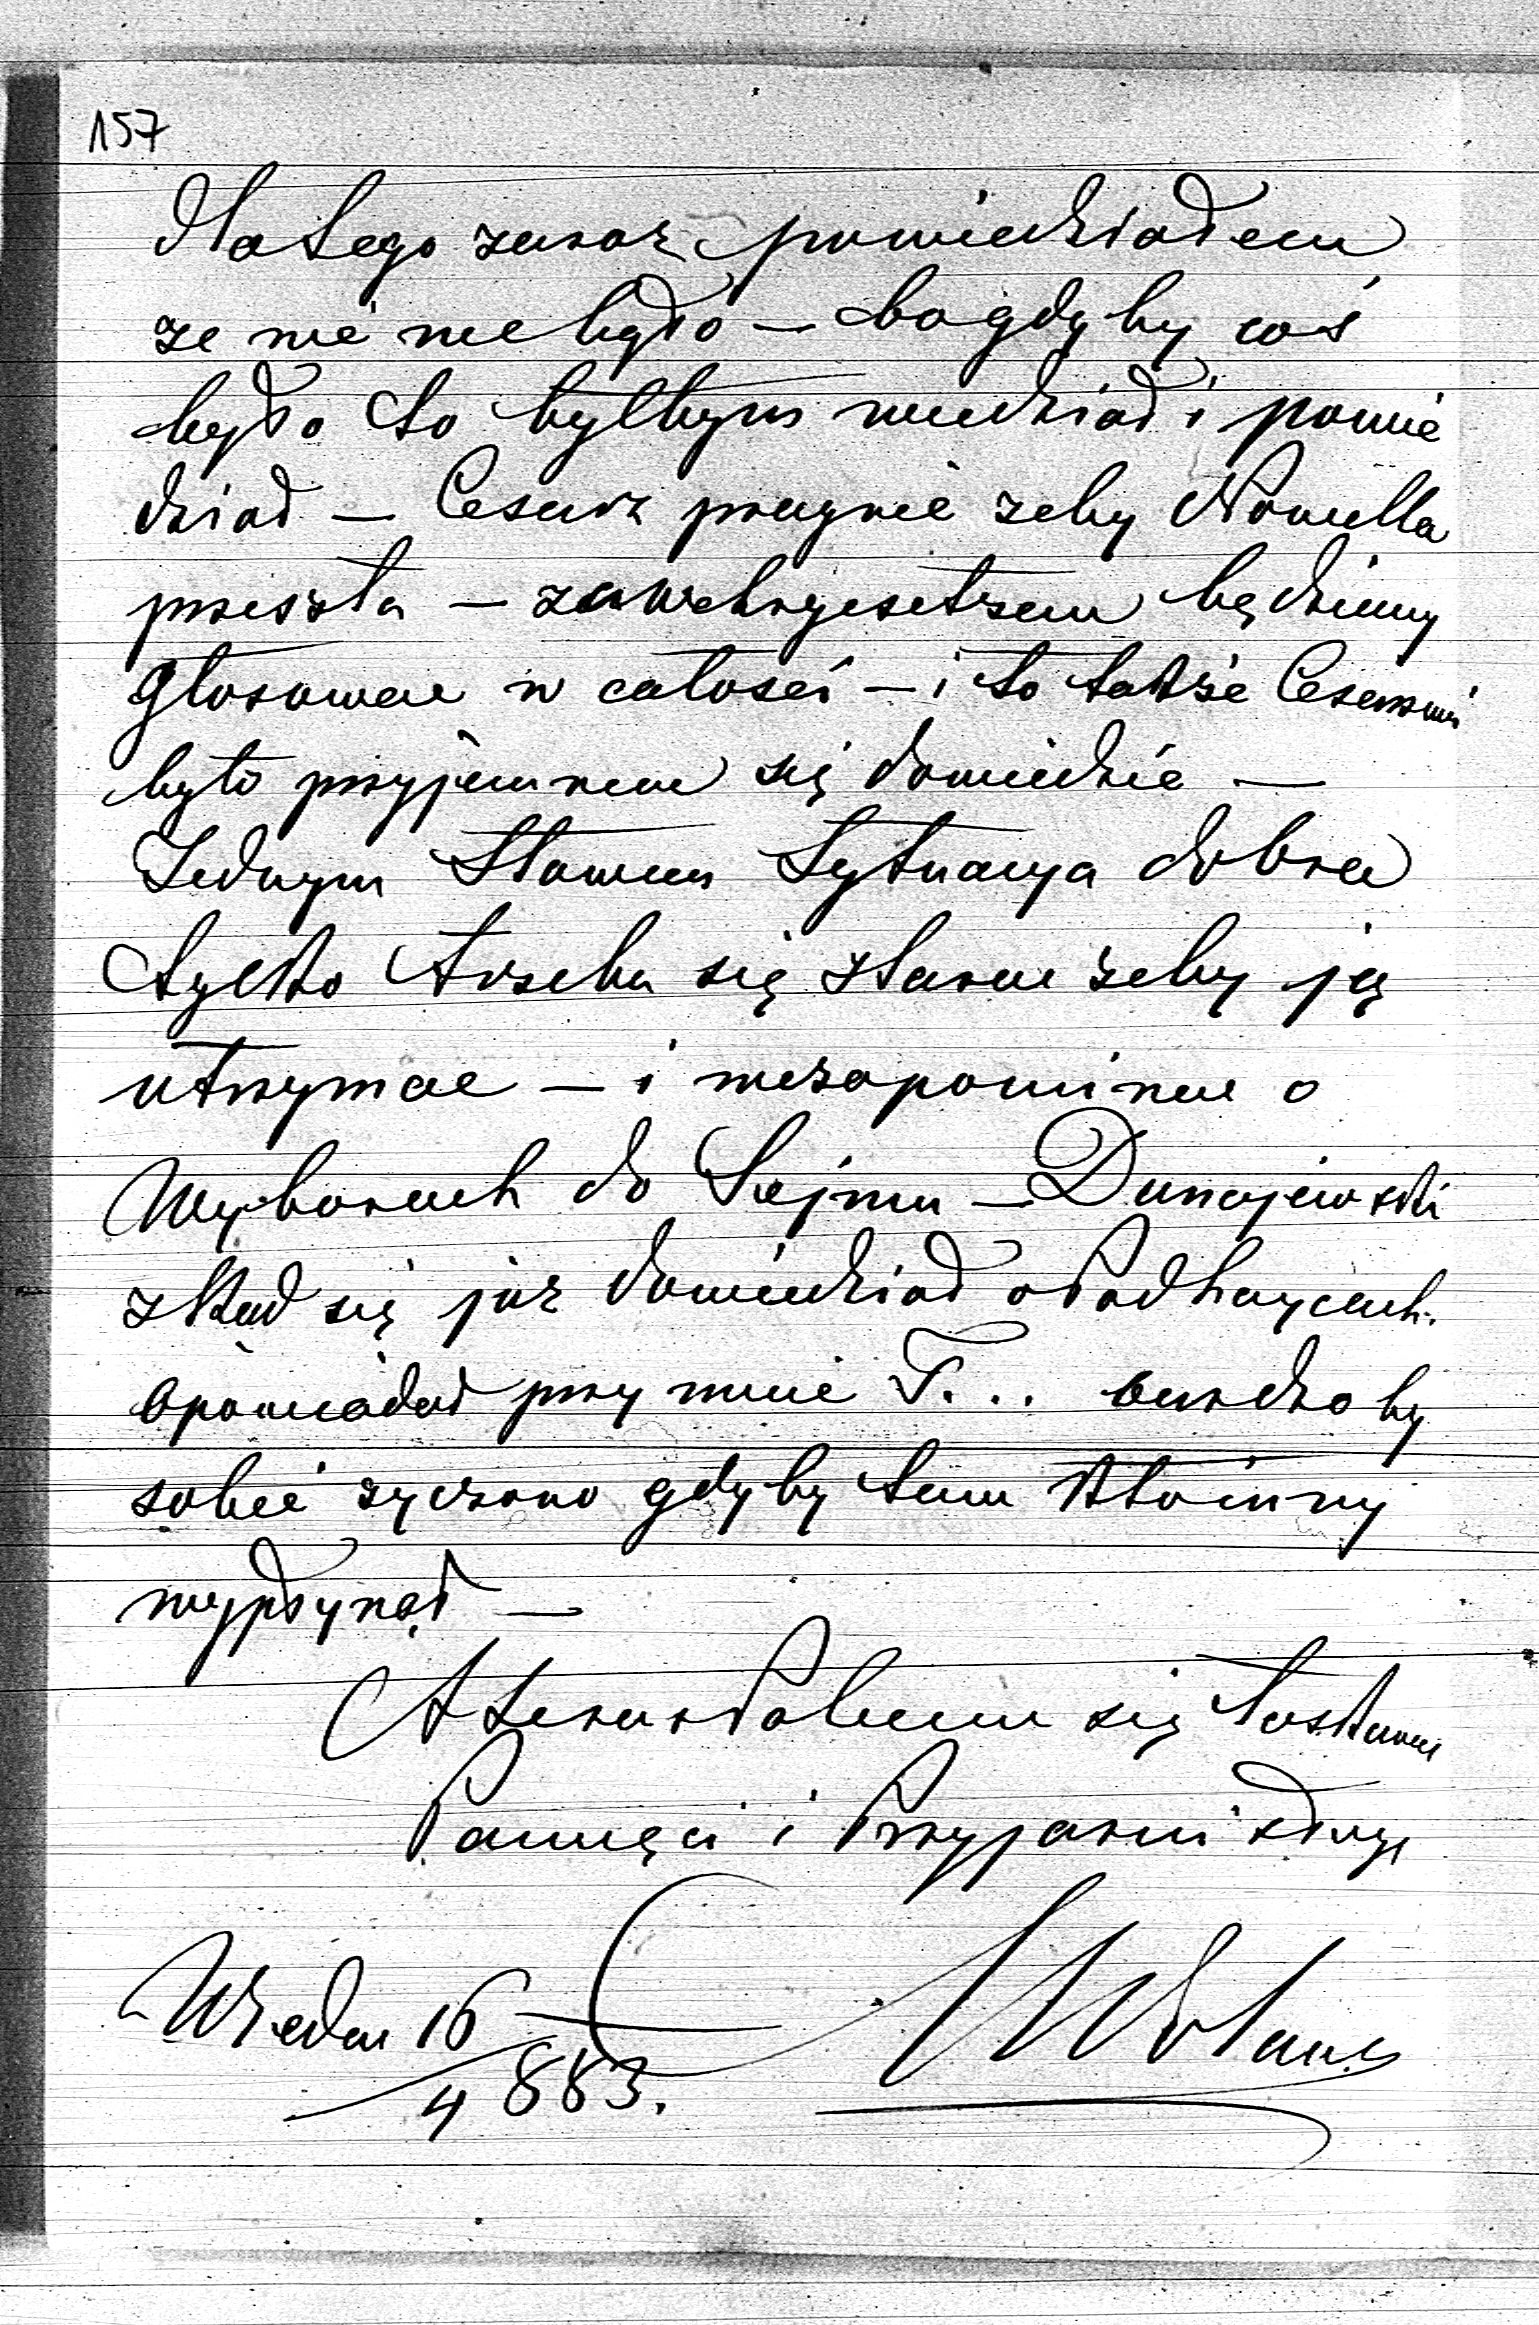 157
Dlatego zaraz powiedziałem
ze nic nie było – bo gdyby coś
było to byłbym wiedział i powie
dział – Cesarz pragnie zeby Nowella
przeszła – za wehrgesetzem będziemy
głosowac w całosci – i to także Cesarzowi
było przyjemnem się dowiedzic –
Jednym Słowem Sytuacya dobra
tylko trzeba się starac zeby ją
utrzymac – i niezapominac o
Wyborach do Sejmu – Dunajewski
zkąd się juz dowiedział o Podhaycach.
opowiadał przy mnie T... bardzo by
sobie zyczono gdyby tam kto inny
wypłynął –
A teraz polecam się łaskawej
Pamięci i Przyjazni sługa
Wieden 16/4 883.
Wolans